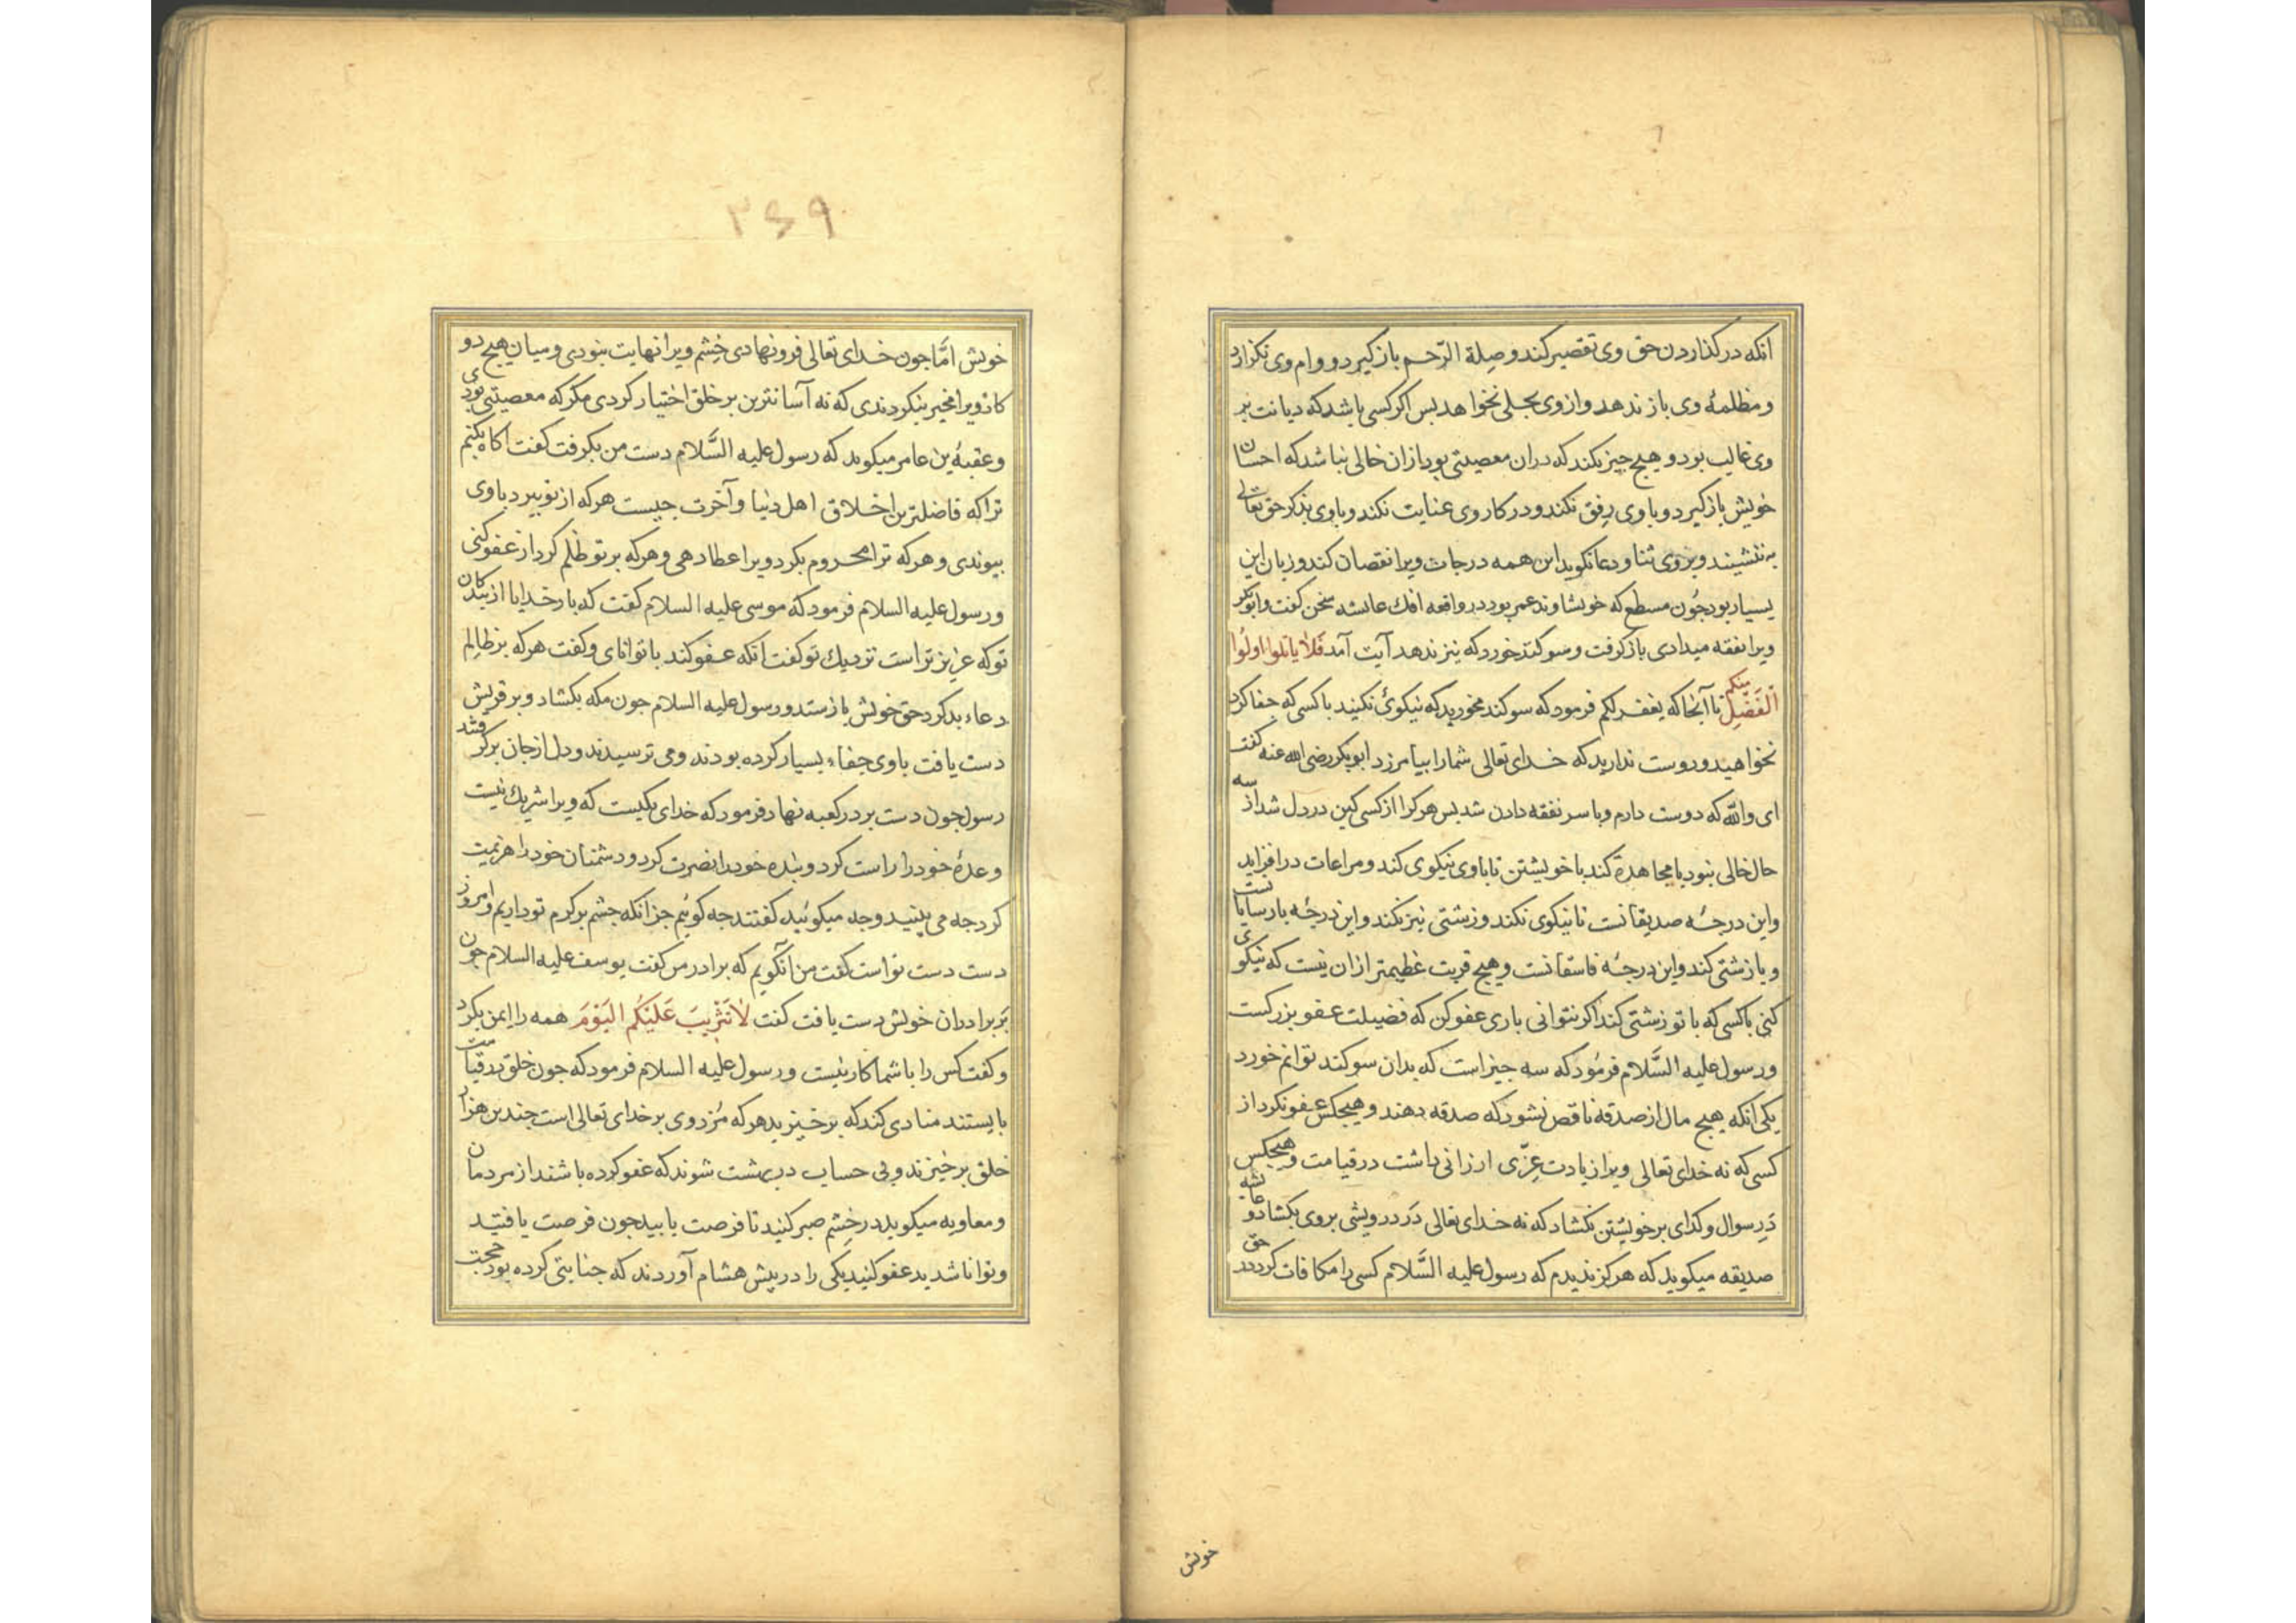 انکه در کذاردن حق وی تقصیر کند و صِلة الرّحم باز کیرد و وام وی نکزارد
و مظلمهٔ وی باز ندهد و از وی بحلی نخواهد بس اکر کسی باشد که دیانت بر
وی غالب بود و هیچ جیز نکند که دران معصیتی بود ازان خالی نباشد که احسان
خویش باز کیرد و با وی رِفق نکند و در کار وی عنایت نکند و با وی بذکر حق تعالی
به ننشیند و بر وی ثنا و دعا نکوید این همه درجات ویرا نقصان کند و زیان این
بسیار بود جُون مسطح که خویشاوند عمر بود در واقعه افك عایشه سخن کفت و ابوبکر
ویرا نفقه میدادی باز کرفت و سوکند خورد که نیز ندهد آیت آمد فَلا یاتلوا اولُوا
الْفَضْلِ منکم تا آنجا که یغفر لکم فرمود که سوکند مخورید که نیکوئ نکنید با کسی که جفا کرد
نخواهید و دوست ندارید که خدای تعالی شمارا بیامرزد ابوبکر رضی الله عنه کفت
ای والله که دوست دارم و با سر نفقه دادن شد بس هر کرا از کسی کین در دل شد از سه
حال خالی نبود یا مجاهدة کند با خویشتن تا با وی نیکوی کند و مراعات درافزاید
و این درجهٔ صدیقانست تا نیکوی نکند و زشتی نیز نکند و این درجهٔ بارسایانست
و یا زشتی کند و این درجهٔ فاسقانست و هیج قربت عظیمتر ازان نیست که نیکوی
کنی با کسی که با تو زشتی کند اکر نتوانی باری عفو کن که فضیلت عفو بزرکست
و رسول علیه السَّلام فرمُود که سه جیز است که بدان سوکند توانم خورد
یکی انکه هیچ مال از صدقه ناقص نشود که صدقه دهند و هیجکس عفو نکرد از
کسی که نه خدای تعالی ویرا زیادت عِزّی ارزانی داشت در قیامت و هیجکس
دَرِ سوال و کدای بر خویشتن نکشاد که نه خدای تعالی دَر درویشی بر وی بکشاد و عایشه
صدیقه میکوید که هرکز ندیدم که رسول علیه السَّلام کسی را مکافات کرد در حق
خویش
۳۶۹
خویش امّا جون خدای تعالی فرو نهادی خِشم ویرا نهایت نبودی و میان هیچ دو
کار ویرا مخیر بنکردندی که نه آسانترین بر خلق اختیار کردی مکر که معصیتی بودی
و عقبهٔ بن عامر میکوید که رسول علیه السَّلام دست من بکرفت کفت آکاه بکنم
ترا که فاضلترین اخلاق اهل دنیا و آخرت جیست هر که از تو ببرد با وی
بیوندی و هر که ترا محروم بکرد ویرا عطا دهی و هر که بر تو ظلم کرد ازو عفو کنی
و رسول علیه السلام فرمود که موسی علیه السلام کفت که بار خدایا از بندکان
تو که عزیزتر است نزدیك تو کفت انکه عفو کند با توانای و کفت هر که بر ظالِم
دعاء بد کرد حق خویش باز ستد و رسول علیه السلام جون مکه بکشاد و بر قریش
دست یافت با وی جفاء بسیار کرده بودند و می ترسیدند و دل از جان برکرفتند
رسول جون دست بر در کعبه نهاد فرمود که خدای یکیست که ویرا شریك نیست
وعدهٔ خود را راست کرد و بندهٔ خود را نصرت کرد و دشمنان خود را هزیمت
کرد جه می بینید و جه میکوئید کفتند جه کوئیم جز انکه جشم بر کرم تو داریم و امروز
دست دست تواست کفت من آن کویم که برادر من کفت یوسف علیه السلام جون
بَر برادران خویش دست یافت کفت لاٰ تَثْرِیبَ عَلَیْکُم الیَوْمَ همه را ایمن بکرد
و کفت کس را با شما کار نیست و رسول علیه السلام فرمود که جون خلق در قیامت
بایستند منادی کند که برخیزید هر که مُزد وی بر خدای تعالی است جندین هزار
خلق برخیزند و بی حساب در بهشت شوند که عفو کرده باشند از مردمان
و معاویه میکوید در خِشم صبر کنید تا فرصت یابید جون فرصت یافتید
و توانا شدید عفو کنید یکی را در بیش هشام آوردند که جنایتی کرده بود حجت